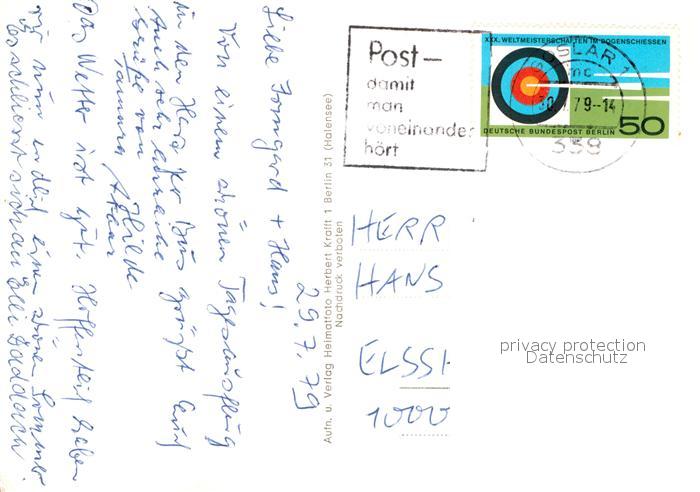 29.7.79
Liebe Irmgard + Hans!
Von einem schönen Tagesausflug
in den Harz
Euch sehr
Grüße von
Hilde
Das Wetter ist gut. Hoffentlich haben
wir nun endlich einen schönen Sommer.
Es schliesst sich an
Aufn. u. Verlag Heimatfoto Herbert Krafft 1 Berlin 31 (Halensee)
Nachdruck verboten
Post—
damit
man
voneinander
hört
GOSLAR 1
30. 7.79--14
338
XXX. WELTMEISTERSCHAFTEN IM BOGENSCHIESSEN
DEUTSCHE BUNDESPOST BERLIN 50
HERR
HANS
ELSS
1000
privacy protection
Datenschutz